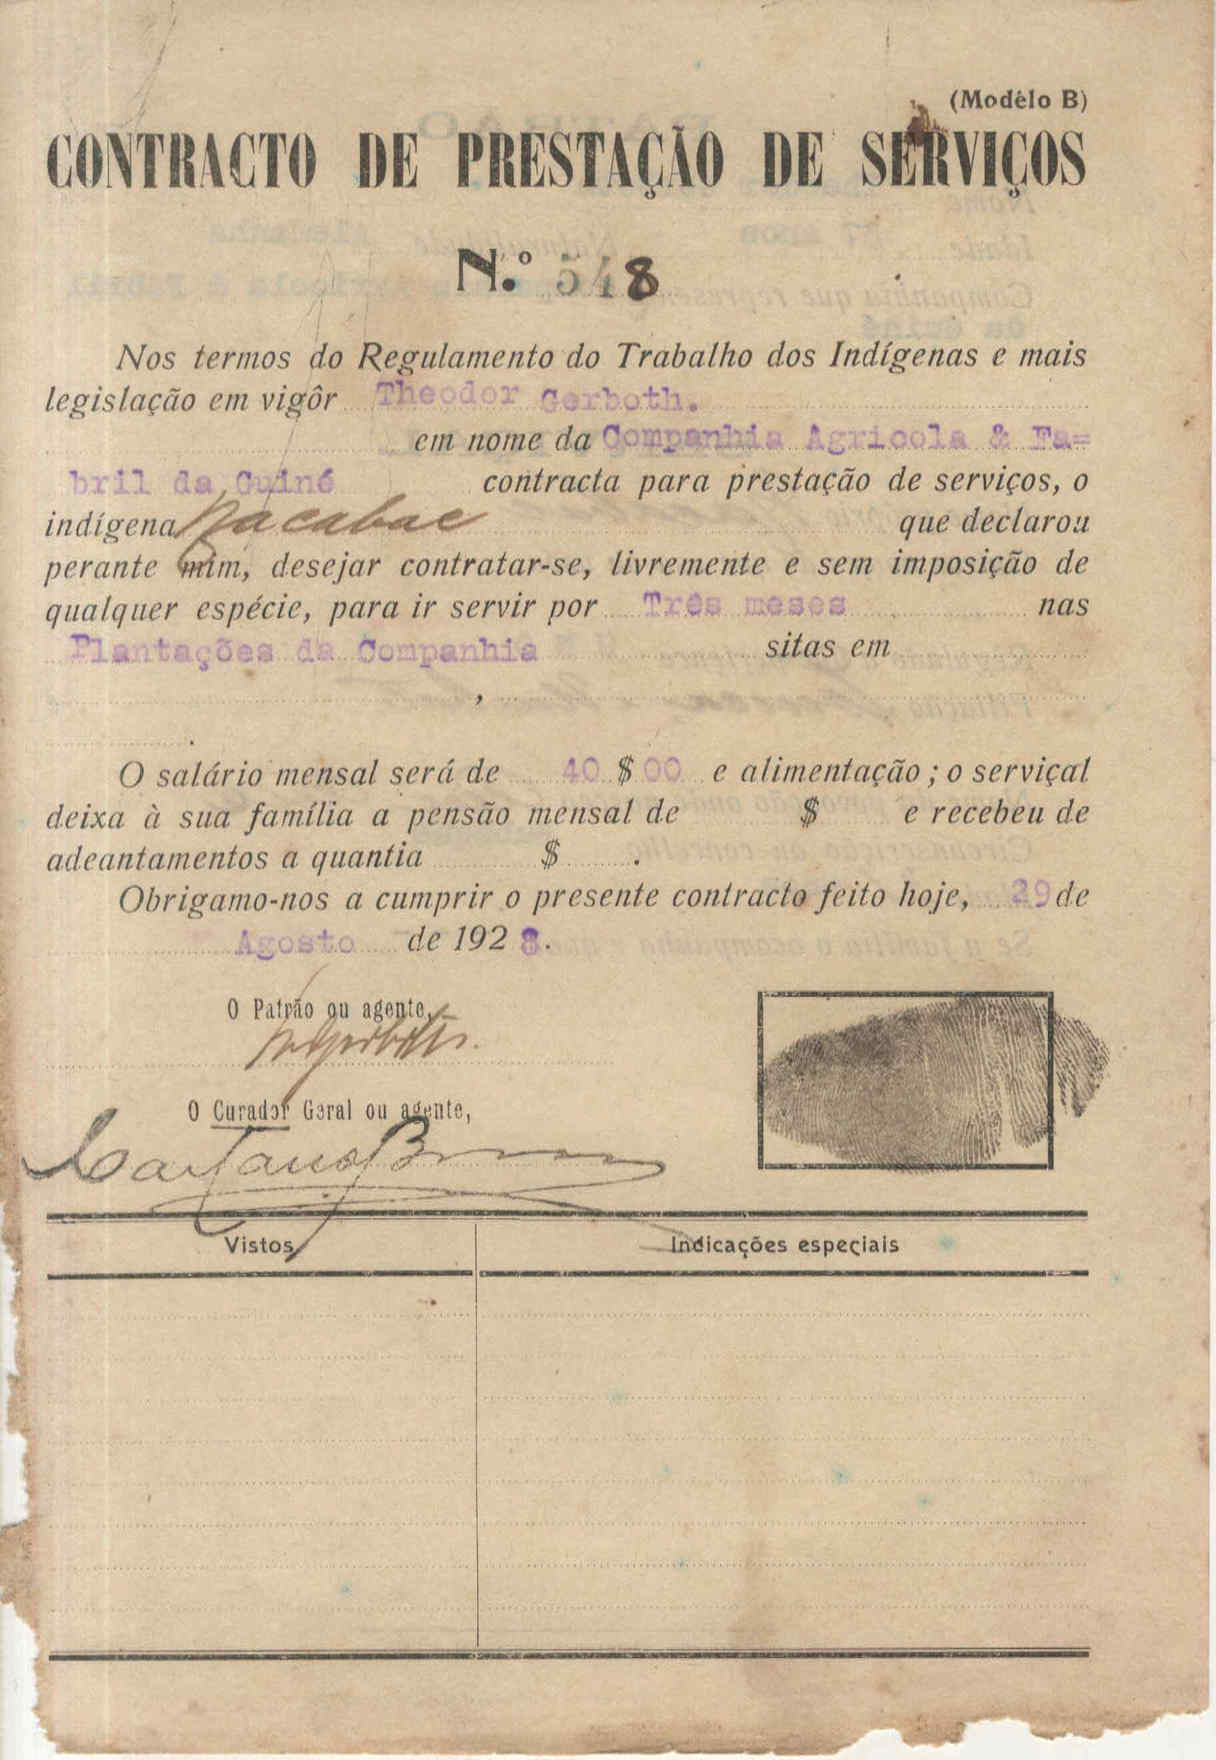 (Modêlo B)
CONTRACTO DE PRESTAÇÃO DE SERVIÇOS
N.º 548
Nos termos do Regulamento do Trabalho dos Indígenas e mais
legislação em vigôr Theodor Gerboth.
em nome da Companhia Agricola & Fa=
bril da Guiné contracta para prestação de serviços, o
indígena Nacabac que declarou
perante mim, desejar contratar-se, livremente e sem imposição de
qualquer espécie, para ir servir por Três meses nas
Plantações da Companhia sitas em
,
.
O salário mensal será de 40 $ 00 e alimentação; o serviçal
deixa à sua família a pensão mensal de $ e recebeu de
adeantamentos a quantia $ .
Obrigamo-nos a cumprir o presente contracto feito hoje, 29 de
Agosto de 1928.
O Patrão ou agente,
O Curador Geral ou agente,
Caetano
Vistos
Indicações especiais